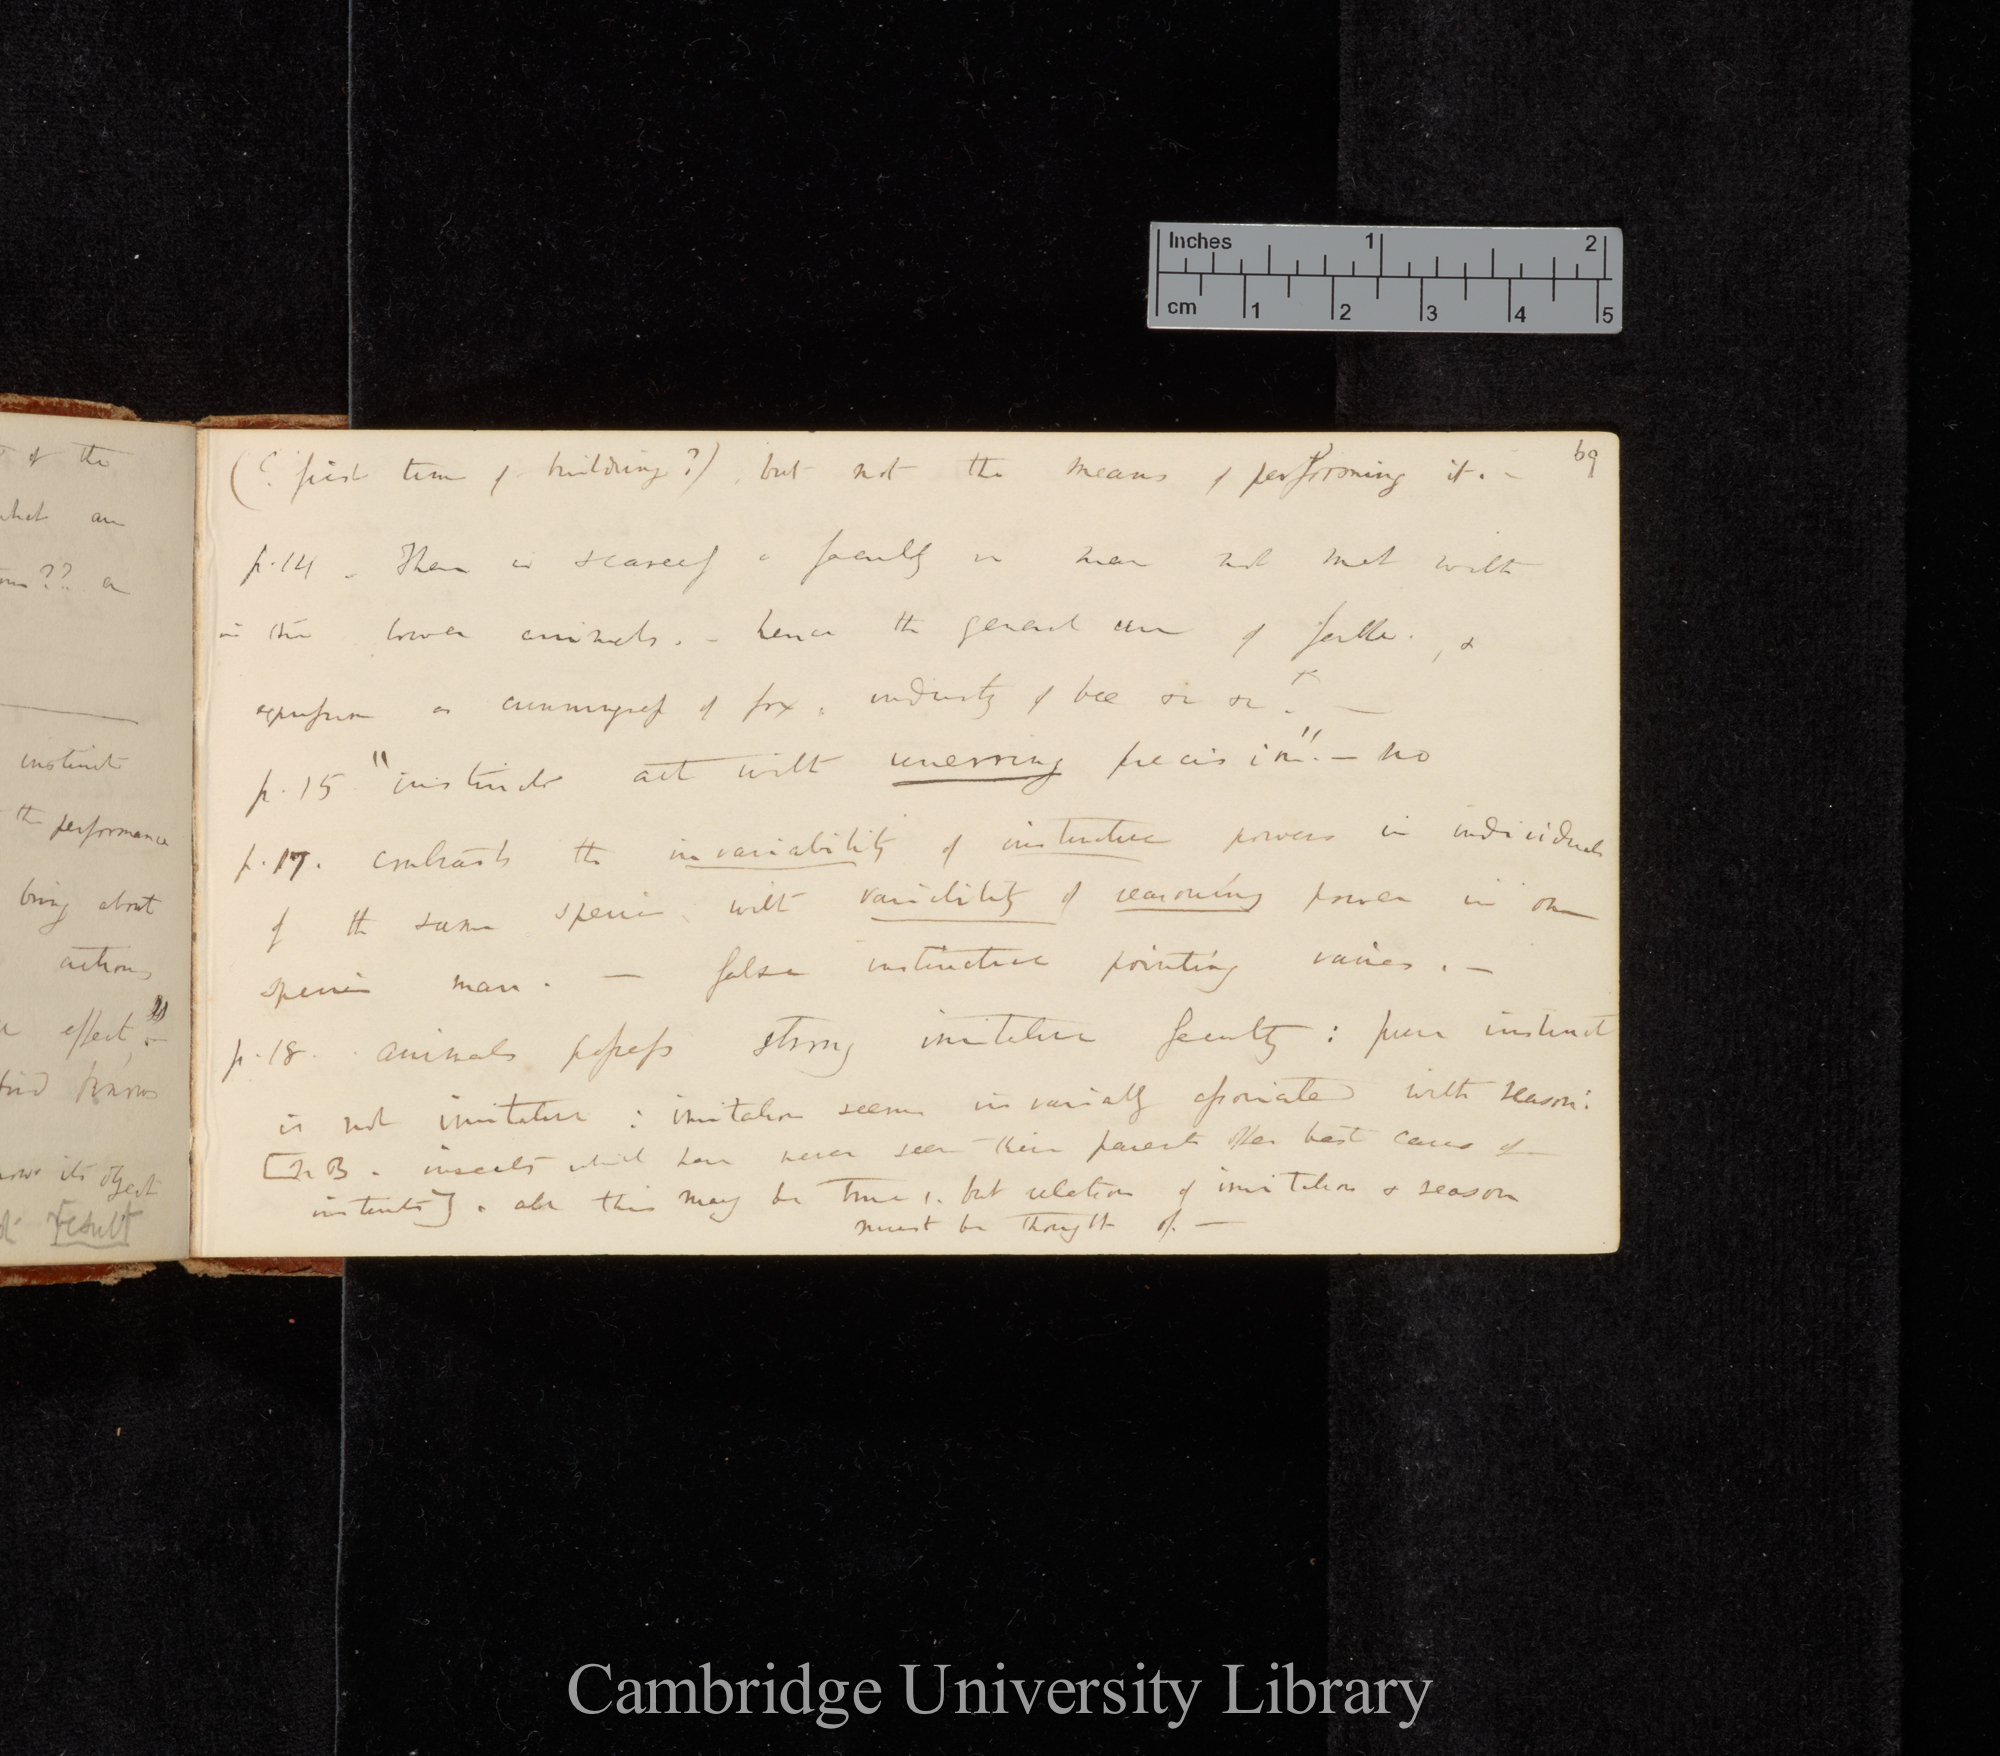 of the
what an
?? a
instinct
the performance
bring about
actions
effect,
knows
its object
result
69
(? first time of building?), but not the means of performing it. —
p. 14. There is scarcely a faculty in man not met with
in the lower animals. — hence the general use of fable., &
expression as cunningness of fox, industry of bee &c &c. —
p. 15 "instincts act with unerring precision". — no
p. 17. contrasts the invariability of instinctive powers in individuals
of the same species with variability of reasoning power in one
species man. — false instinctive pointing varies. —
p. 18. animals possess strong imitative faculty: pure instinct
is not imitative: imitation seems invariably associated with reason:
[N B. insects which have never seen their parents offer best cases of
instincts]. all this may be true, but relation of imitation & reason
must be thought of. —
Inches 1 2
cm 1 2 3 4 5
Cambridge University Library